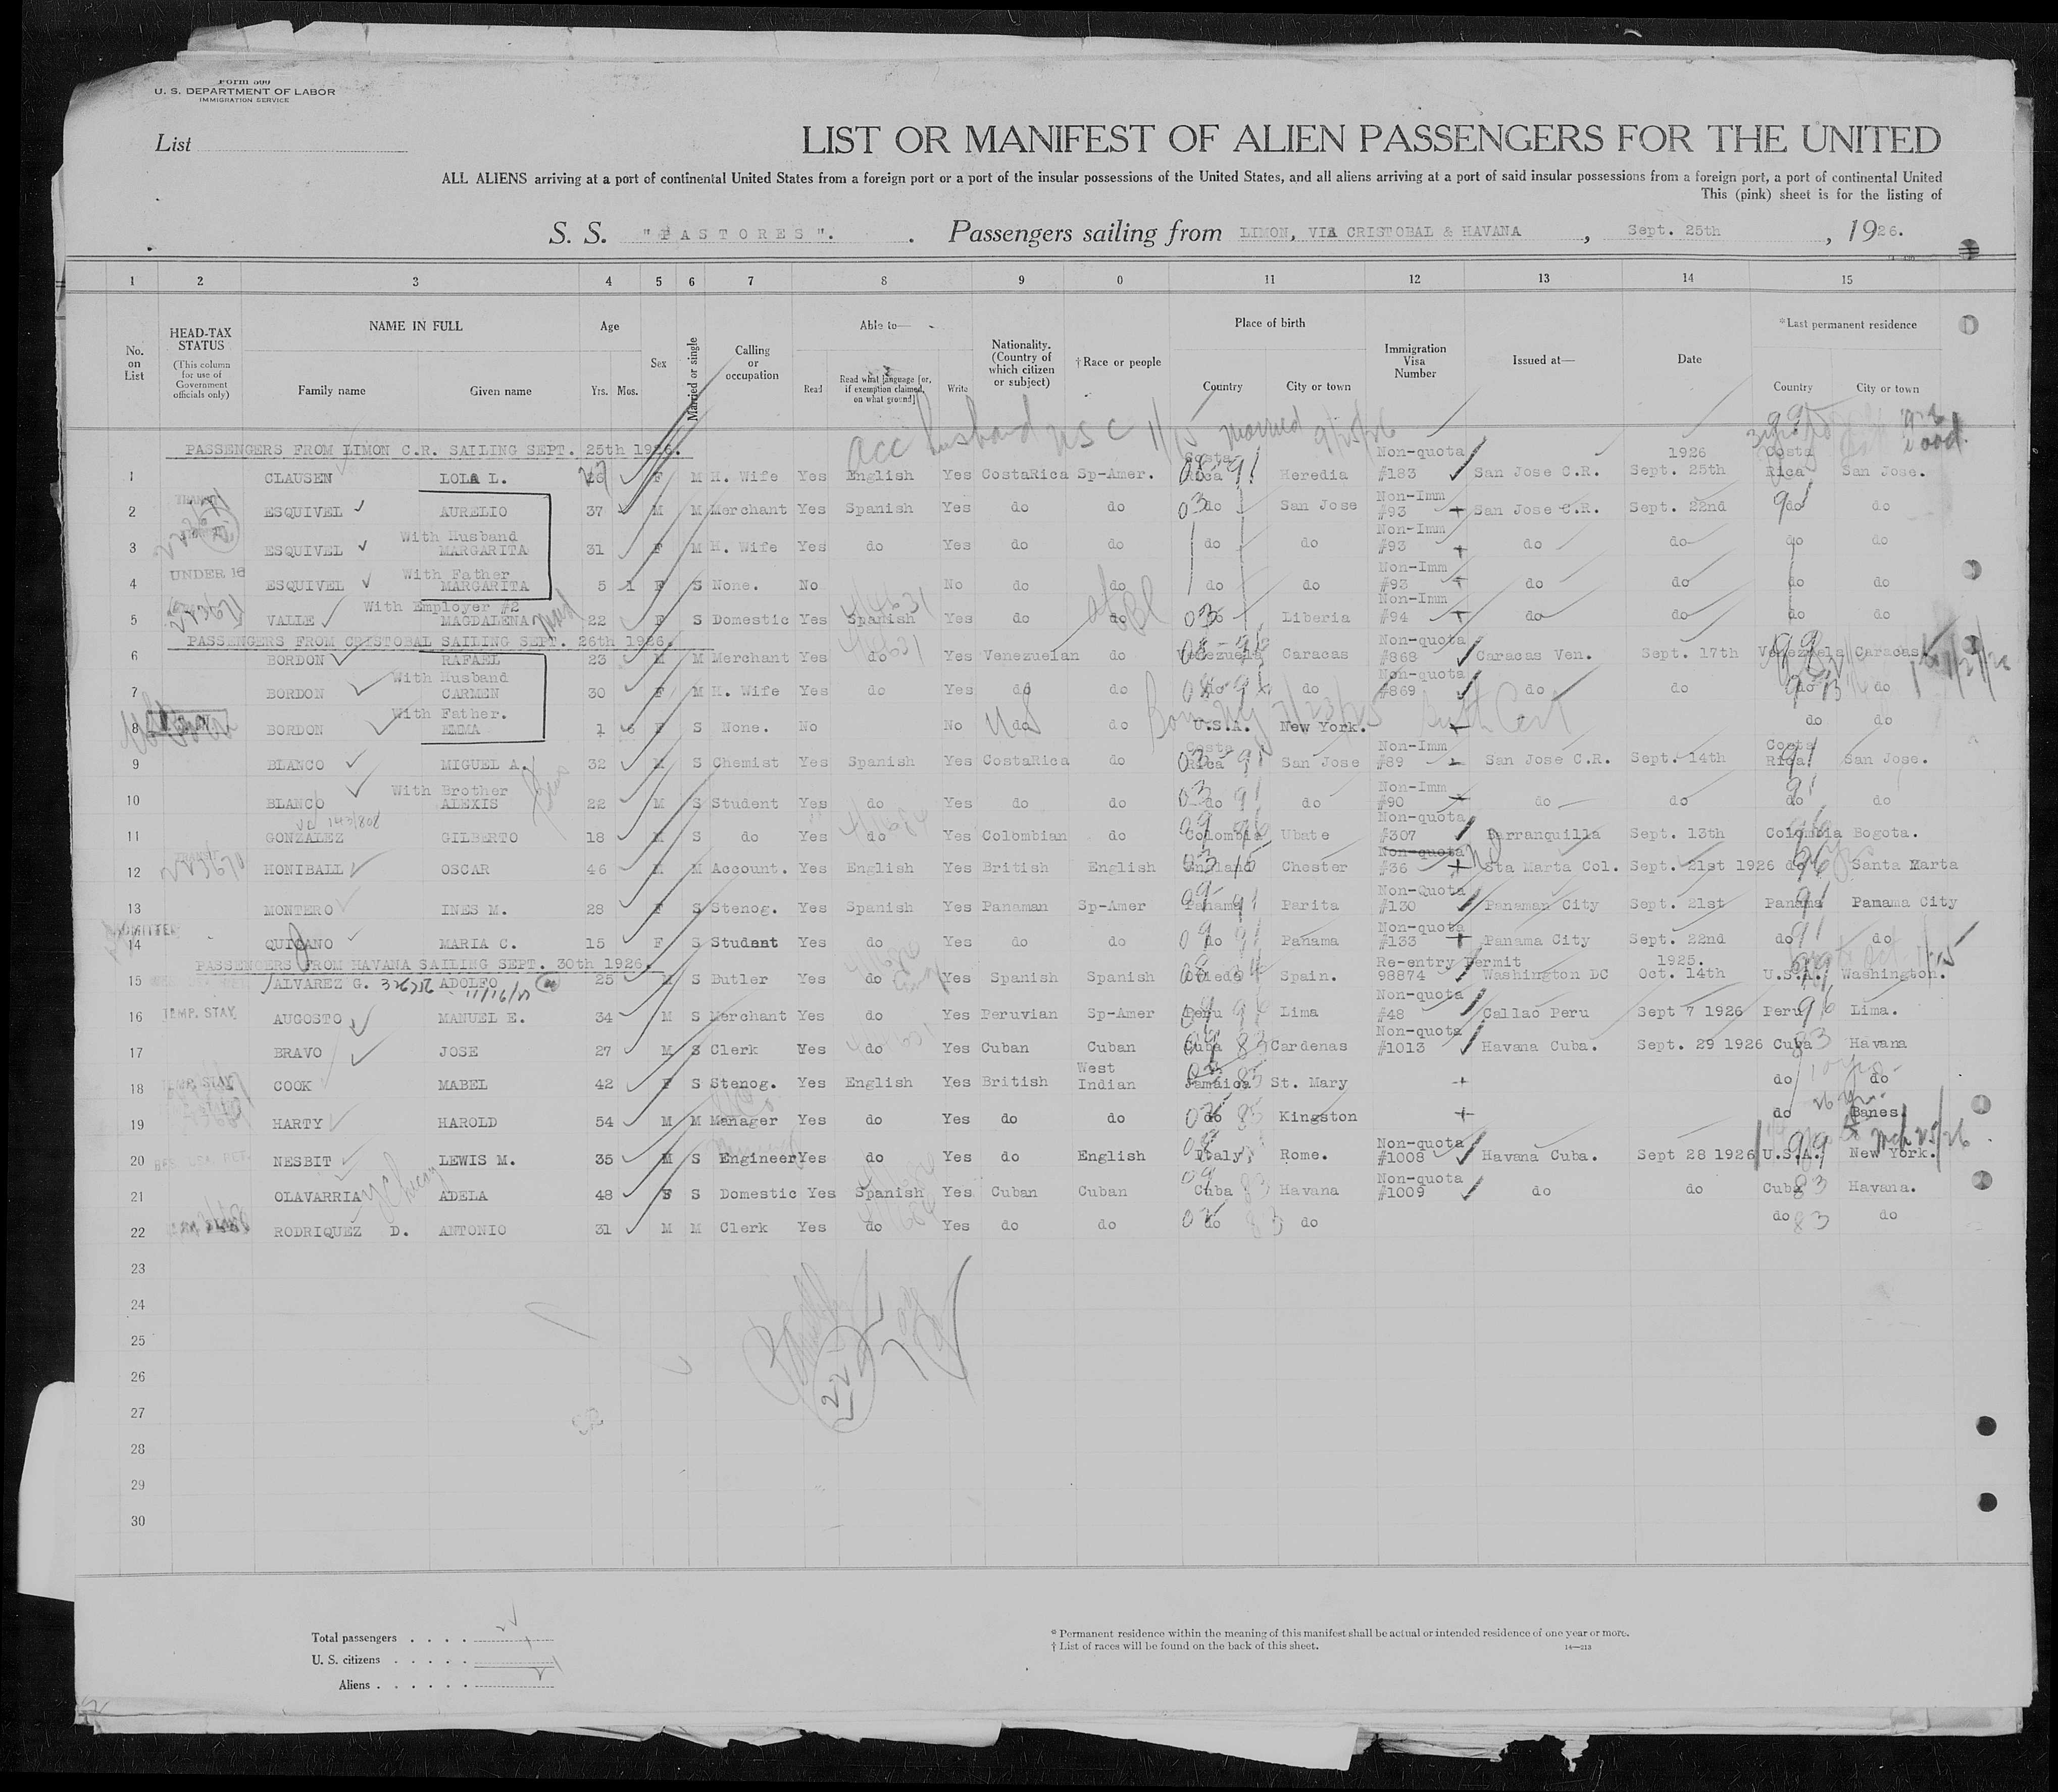 Form 500
U. S. DEPARTMENT OF LABOR
IMMIGRATION SERVICE
List
LIST OR MANIFEST OF ALIEN PASSENGERS FOR THE UNITED
ALL ALIENS arriving at a port of continental United States from a foreign port or a port of the insular possessions of the United States, and all aliens arriving at a port of said insular possessions from a foreign port, a port of continental United
This (pink) sheet is for the listing of
S. S. "PASTORES". Passengers sailing from LIMON, VIA CRISTOBAL & HAVANA, Sept. 25th, 1926.
1 2 3 4 5 6 7 8 9 0 11 12 13 14 15
No. on List
HEAD-TAX STATUS (This column for use of Government officials only)
NAME IN FULL Family name Given name
Age Yrs. Mos.
Sex
Married or single
Calling or occupation
Able to— Read Read what language [or, if exemption claimed, on what ground] Write
Nationality. (Country of which citizen or subject)
† Race or people
Place of birth Country City or town
Immigration Visa Number
Issued at—
Date
*Last permanent residence Country City or town
acc husband USC 1/15 married 9/25/26
PASSENGERS FROM LIMON C.R. SAILING SEPT. 25th 1926.
1 CLAUSEN LOLA L. 27 F M H. Wife Yes English Yes CostaRica Sp-Amer. Costa Rica Heredia Non-quota #183 San Jose C.R. 1926 Sept. 25th Costa Rica San Jose.
2 ESQUIVEL AURELIO 37 M M Merchant Yes Spanish Yes do do do San Jose Non-Imm #93 San Jose C.R. Sept. 22nd do do
With Husband
3 ESQUIVEL MARGARITA 31 F M H. Wife Yes do Yes do do do do Non-Imm #93 do do do do
UNDER 16 With Father
4 ESQUIVEL MARGARITA 5 1 F S None. No No do do do do Non-Imm #93 do do do do
With Employer #2
5 VALLE MAGDALENA 22 F S Domestic Yes Spanish Yes do do do Liberia Non-Imm #94 do do do do
PASSENGERS FROM CRISTOBAL SAILING SEPT. 26th 1926.
6 BORDON RAFAEL 23 M M Merchant Yes do Yes Venezuelan do Venezuela Caracas Non-quota #868 Caracas Ven. Sept. 17th Venezuela Caracas
With Husband
7 BORDON CARMEN 30 F M H. Wife Yes do Yes do do do do Non-quota #869 do do do do
With Father.
8 BORDON EMMA 1 6 F S None. No No do US do Born NY 3/23/25 U.S.A. New York. Birth Cert do do
9 BLANCO MIGUEL A. 32 M S Chemist Yes Spanish Yes CostaRica do Costa Rica San Jose Non-Imm #89 San Jose C.R. Sept. 14th Costa Rica San Jose.
With Brother
10 BLANCO ALEXIS 22 M S Student Yes do Yes do do do do Non-Imm #90 do do do do
11 GONZALEZ GILBERTO 18 M S do Yes do Yes Colombian do Colombia Ubate Non-quota #307 Barranquilla Sept. 13th Colombia Bogota.
12 HONIBALL OSCAR 46 M M Account. Yes English Yes British English England Chester Non-quota #36 Sta Marta Col. Sept. 21st 1926 do Santa Marta
13 MONTERO INES M. 28 F S Stenog. Yes Spanish Yes Panaman Sp-Amer Panama Parita Non-Quota #130 Panaman City Sept. 21st Panama Panama City
ADMITTED
14 QUIJANO MARIA C. 15 F S Student Yes do Yes do do do Panama Non-quota #133 Panama City Sept. 22nd do do
PASSENGERS FROM HAVANA SAILING SEPT. 30th 1926.
15 ALVAREZ G. ADOLFO 25 M S Butler Yes do Yes Spanish Spanish Oviedo Spain. Re-entry Permit 98874 Washington DC 1925. Oct. 14th U.S.A. Washington.
16 TEMP. STAY AUGOSTO MANUEL E. 34 M S Merchant Yes do Yes Peruvian Sp-Amer Peru Lima Non-quota #48 Callao Peru Sept 7 1926 Peru Lima.
17 BRAVO JOSE 27 M S Clerk Yes do Yes Cuban Cuban Cuba Cardenas Non-quota #1013 Havana Cuba. Sept. 29 1926 Cuba Havana
18 TEMP. STAY COOK MABEL 42 F S Stenog. Yes English Yes British West Indian Jamaica St. Mary do do
19 HARTY HAROLD 54 M M Manager Yes do Yes do do do Kingston do Banes
20 NESBIT LEWIS M. 35 M S Engineer Yes do Yes do English Italy, Rome. Non-quota #1008 Havana Cuba. Sept 28 1926 U.S.A. New York.
21 OLAVARRIA ADELA 48 F S Domestic Yes Spanish Yes Cuban Cuban Cuba Havana Non-quota #1009 do do Cuba Havana.
22 RODRIQUEZ D. ANTONIO 31 M M Clerk Yes do Yes do do do do do do
23
24
25
26
27
28
29
30
22
Total passengers . . . .
U. S. citizens . . . . .
Aliens . . . . . .
* Permanent residence within the meaning of this manifest shall be actual or intended residence of one year or more.
† List of races will be found on the back of this sheet.
14—213